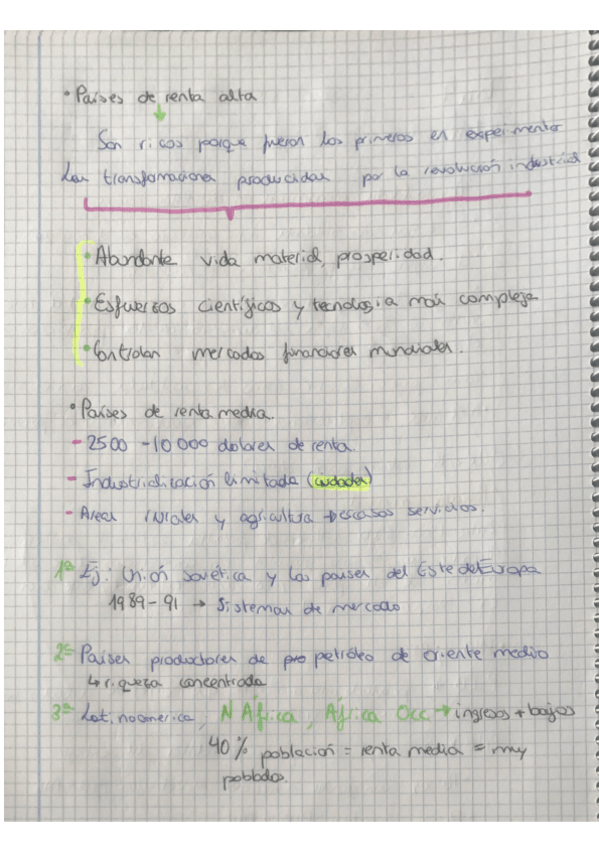 • Países de renta alta
Son ricos porque fueron los primeros en experimentar
las transformaciones producidas por la revolución industrial
• Abundante vida material, prosperidad.
• Esfuerzos científicos y tecnología más compleja
• Controlan mercados financieros mundiales.
• Países de renta media.
- 2500 - 10 000 dolares de renta
- Industrialización limitada (ciudades)
- Areas rurales y agricultura → escasos servicios.
1º Ej: Unión soviética y los países del Este de Europa
1989-91 → Sistemas de mercado
2º Países productores de pro petróleo de oriente medio
↳ riqueza concentrada
3º Latinoamerica, N África, África Occ → ingresos + bajos
40% población = renta media = muy
poblados.